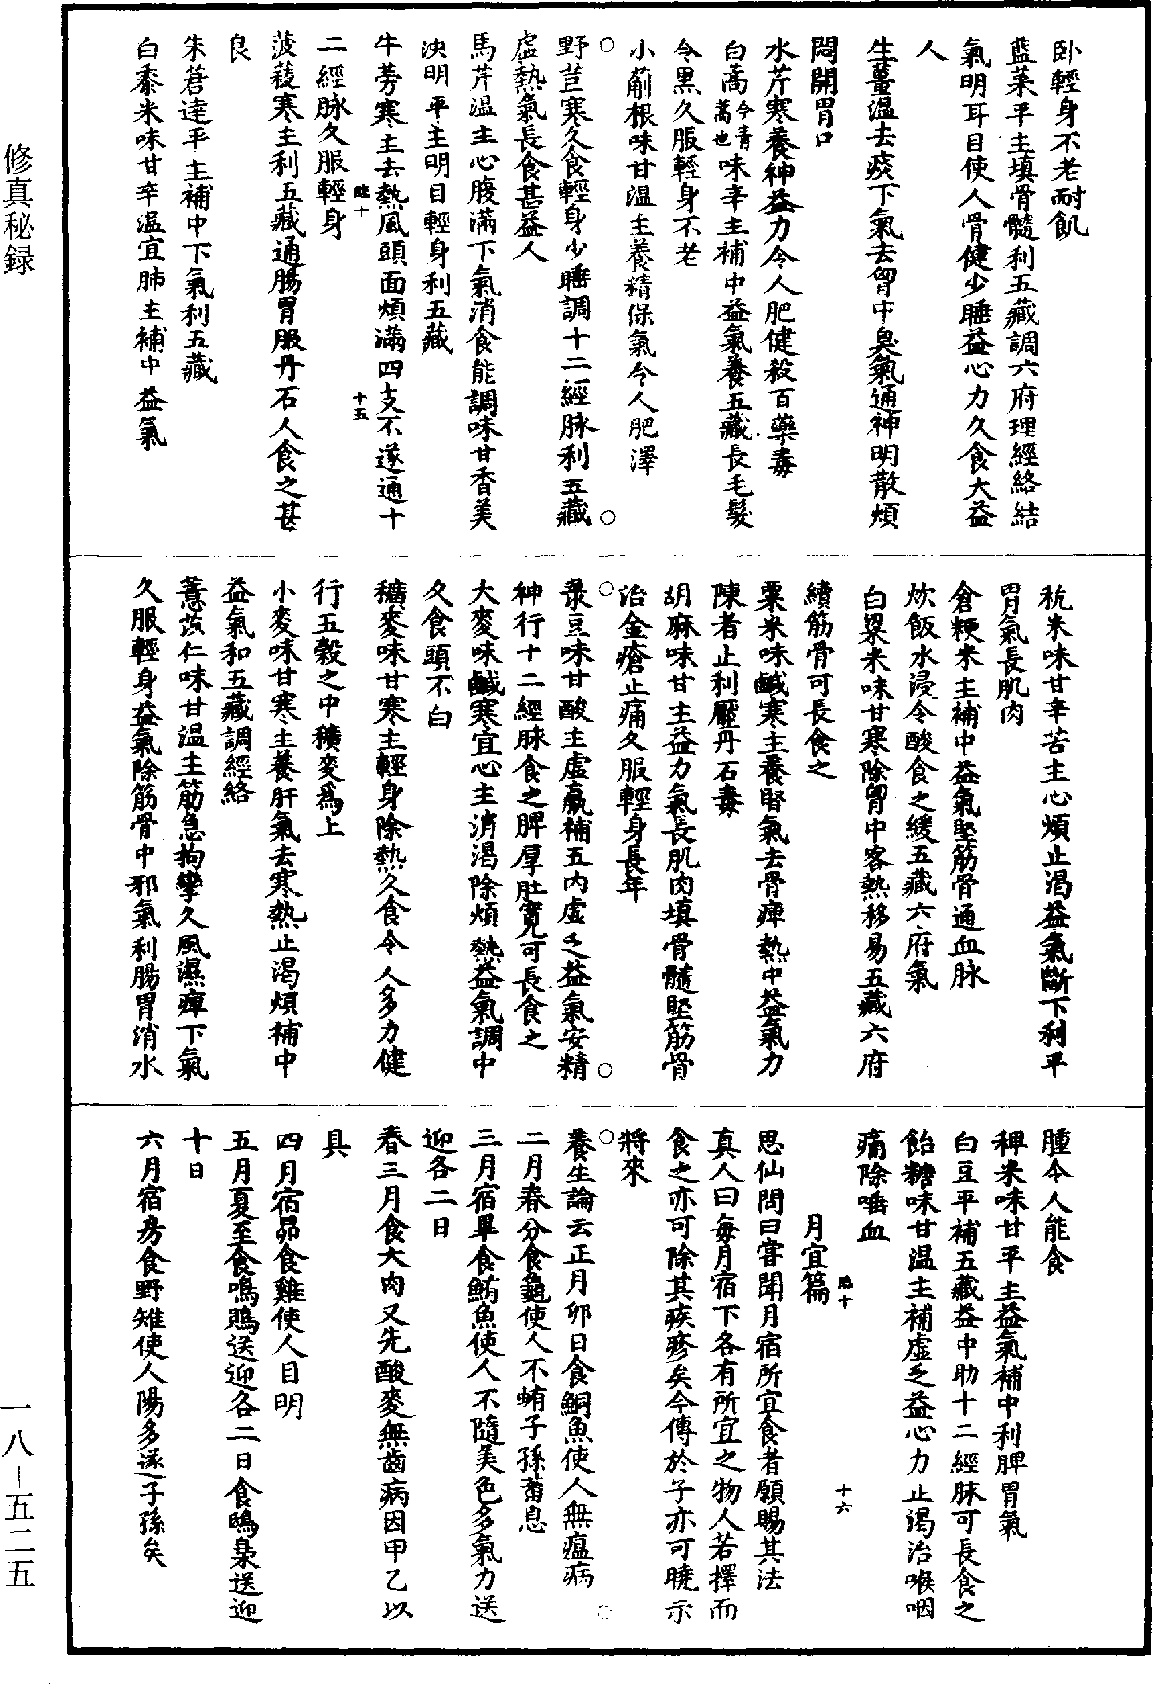 卧輕身不老耐飢
藍菜平主填骨髓利五藏調六府理經絡結
氣明耳目使人骨健少睡益心力久食大益
人
生薑温去痰下氣去胷中臭氣通神明散煩
悶開胃口
水芹寒養神益力令人肥健殺百藥毒
白蒿今青蒿也味辛主補中益氣養五藏長毛髮
令黑久服輕身不老
小蒴根味甘温主養精保氣令人肥澤
野苣寒久食輕身少睡調十二經脉利五藏
虛熱氣長食甚益人
馬芹温主心腹滿下氣消食能調味甘香美
決明平主明目輕身利五藏
牛蒡寒主去熱風頭面煩滿四支不遂通十
二經脉久服輕身
臨十
十五
菠薐寒主利五藏通腸胃服丹石人食之甚
良
朱莙達平主補中下氣利五藏
白黍米味甘辛温宜肺主補中益氣
秔米味甘辛苦主心煩止渴益氣斷下利平
胃氣長肌肉
倉粳米主補中益氣堅筋骨通血脉
炊飯水浸令酸食之緩五藏六府氣
白粱米味甘寒除胷中客熱移易五藏六府
續筋骨可長食之
粟米味鹹寒主養腎氣去骨痺熱中益氣力
陳者止利壓丹石毒
胡麻味甘主益力氣長肌肉填骨髓堅筋骨
治金瘡止痛久服輕身長年
菉豆味甘酸主虛羸補五内虛乏益氣安精
神行十二經脉食之脾厚肚寬可長食之
大麥味鹹寒宜心主消渴除煩熱益氣調中
久食頭不白
穬麥味甘寒主輕身除熱久食令人多力健
行五穀之中穬麥爲上
小麥味甘寒主養肝氣去寒熱止渴煩補中
益氣和五藏調經絡
薏苡仁味甘温主筋急拘攣久風濕痺下氣
久服輕身益氣除筋骨中邪氣利腸胃消水
腫令人能食
稗米味甘平主益氣補中利脾胃氣
白豆平補五藏益中助十二經脉可長食之
飴糖味甘温主補虛乏益心力止渴治喉咽
痛除唾血
月宜篇
臨十
十六
思仙問曰嘗聞月宿所宜食者願賜其法
真人曰每月宿下各有所宜之物人若擇而
食之亦可除其疾疹矣今傳於子亦可曉示
將來
養生論云正月卯日食鮦魚使人無瘟病
二月春分食龜使人不蛕子孫蕃息
三月宿畢食鮪魚使人不隨美色多氣力送
迎各二日
春三月食大肉又先酸麥無齒病因甲乙以
具
四月宿昴食雞使人目明
五月夏至食鳴鵙送迎各二日食鴞梟送迎
十日
六月宿房食野雉使人陽多逐子孫矣
修真秘録
一八—五二五